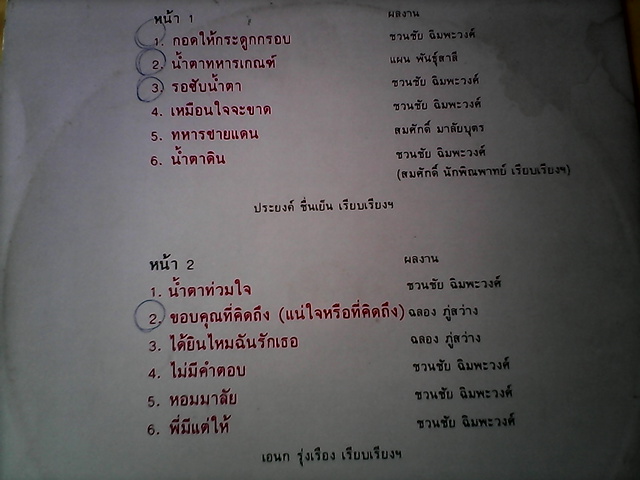 หน้า 1 ผลงาน
1. กอดให้กระดูกกรอบ ชวนชัย ฉิมพะวงศ์
2. น้ำตาทหารเกณฑ์ แผน พันธุ์สาลี
3. รอซับน้ำตา ชวนชัย ฉิมพะวงศ์
4. เหมือนใจจะขาด ชวนชัย ฉิมพะวงศ์
5. ทหารชายแดน สมศักดิ์ มาลัยบุตร
6. น้ำตาดิน ชวนชัย ฉิมพะวงศ์
(สมศักดิ์ นักพิณพาทย์ เรียบเรียงฯ)
ประยงค์ ชื่นเย็น เรียบเรียงฯ
หน้า 2 ผลงาน
1. น้ำตาท่วมใจ ชวนชัย ฉิมพะวงศ์
2. ขอบคุณที่คิดถึง (แน่ใจหรือที่คิดถึง) ฉลอง ภู่สว่าง
3. ได้ยินไหมฉันรักเธอ ฉลอง ภู่สว่าง
4. ไม่มีคำตอบ ชวนชัย ฉิมพะวงศ์
5. หอมมาลัย ชวนชัย ฉิมพะวงศ์
6. พี่มีแต่ให้ ชวนชัย ฉิมพะวงศ์
เอนก รุ่งเรือง เรียบเรียงฯ